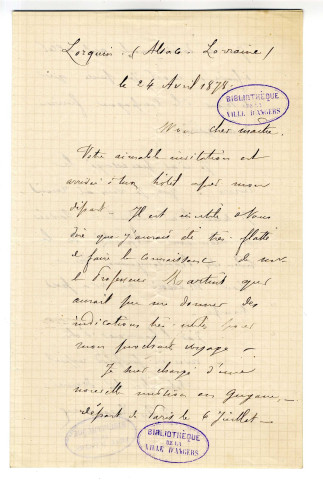 Lorquin (Alsace-Lorraine)
le 24 Avril 1878.
BIBLIOTHÈQUE
DE LA
VILLE D'ANGERS
Mon cher maître,
Votre aimable invitation est
arrivée à mon hôtel après mon
départ. Il est inutile de vous
dire que j'aurais été très flatté
de faire la connaissance de
le Professeur Martins qui
aurait pu me donner des
indications très utiles pour
mon prochain voyage -
Je suis chargé d'une
nouvelle mission en Guyane -
départ de Paris le 6 Juillet -
BIBLIOTHÈQUE
DE LA
VILLE D'ANGERS